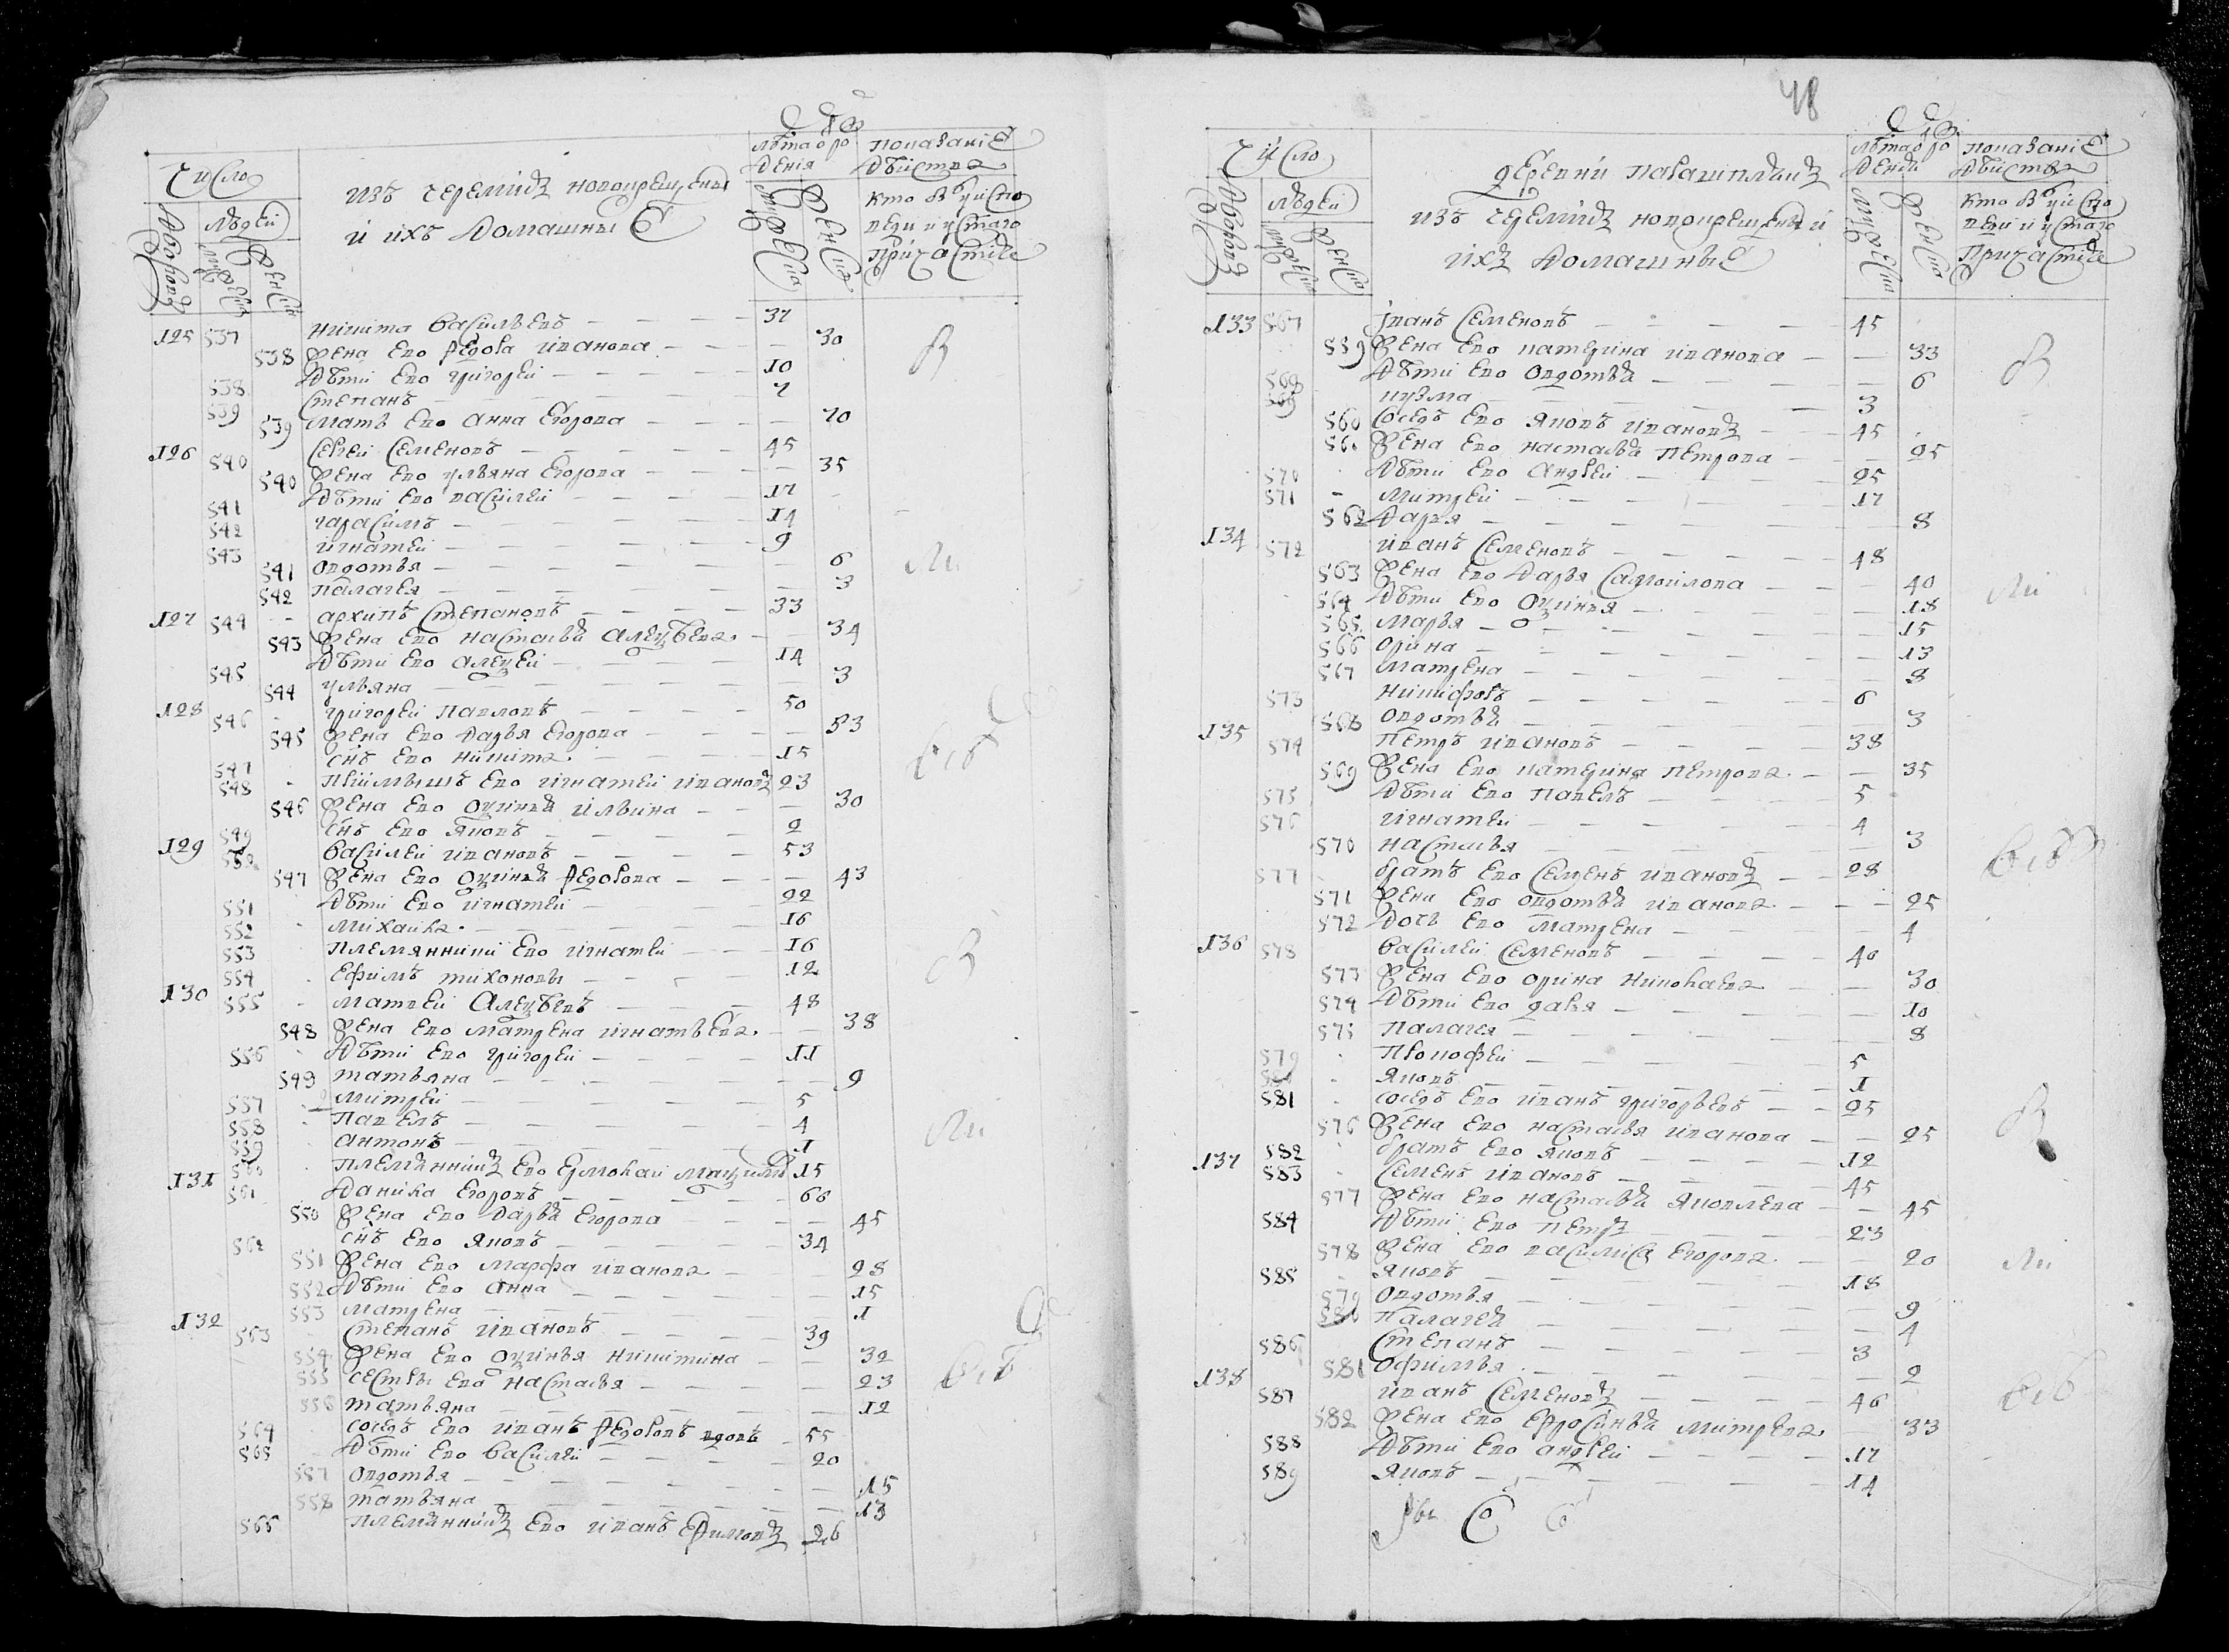 Число
Дворовъ
Людей
мужеска
женска
изъ черемисъ новокрещены
и ихъ домашные
лѣта от рождения
мужеска
женска
показание
действа
кто был у исповеди и у святого
причастия
125 537 никита васильевъ — 37
538 жена ево федора иванова — 30
538 дѣти ево григорей — 10
539 степанъ — 7
539 мать ево анна егорова — 70
126 540 сергеи семеновъ — 45
540 жена ево ульяна егорова — 35
541 дѣти ево василей — 17
542 гарасимъ — 14
543 игнатеи — 9
541 овдотья — 6
542 палагея — 3
127 544 архипъ степановъ — 33
543 жена ево настасья алеѯѣева — 34
545 дѣти ево алеѯеи — 14
544 ульяна — 3
128 546 григореи павловъ — 50
545 жена ево дарья егорова — 53
547 снъ ево никита — 15
548 приимышъ ево игнатеи ивановъ 23
546 жена ево оѯинья ильина — 30
549 снъ ево яковъ — 2
129 550 василеи ивановъ — 53
547 жена ево оѯинья федорова — 43
551 дѣти ево игнатеи — 22
552 михаила — 16
553 племянники ево игнатеи — 16
554 ефимъ тихоновы — 12
130 555 матвеи алеѯѣевъ — 48
548 жена ево матрена игнатьева — 38
556 дѣти ево григореи — 11
549 татьяна — 9
557 митреи — 5
558 павелъ — 4
559 антонъ — 1
560 племянникъ ево ермолаи 15
131 561 данила егоровъ — 66
550 жена ево дарья егорова — 45
562 снъ ево яковъ — 34
551 жена ево марфа иванова — 28
552 дѣти ево анна — 15
553 матрена — 1
132 563 степанъ ивановъ — 39
554 жена ево оѯинья никитина — 32
555 сестры ево настасья — 23
556 татьяна — 12
564 соседъ ево иванъ федоровъ вдовъ — 55
565 дѣти ево василеи — 20
557 овдотья — 15
558 татьяна — 13
566 племянникъ ево иванъ ефимовъ 26
48
Число
Дворовъ
Людей
мужеска
женска
деревни
изъ черемисъ новокрещены и
ихъ домашные
лѣта от рождения
мужеска
женска
показание
действа
кто был у исповеди и у святого
причастия
133 567 иванъ семеновъ — 45
559 жена ево катерина иванова — 33
дѣти ево овдотья — 6
568 кузма — 3
569 соседъ ево яковъ ивановъ — 45
жена ево настасья петрова — 25
570 дѣти ево андреи — 25
571 митреи — 17
562 дарья — 8
134 572 иванъ семеновъ — 48
563 жена ево дарья самоилова — 40
564 дѣти ево оѯинья — 18
565 марья — 15
566 орина — 13
567 матрена — 8
573 никифоръ — 6
568 овдотья — 3
135 574 петръ ивановъ — 38
569 жена ево катерина петрова — 35
575 дѣти ево павелъ — 5
576 игнатеи — 4
570 настасья — 3
577 братъ ево семенъ ивановъ — 28
571 жена ево овдотья иванова — 25
572 дочь ево матрена — 4
136 578 василеи семеновъ — 40
573 жена ево орина николаева — 30
574 дѣти ево дарья — 10
575 палагея — 8
579 прокофеи — 5
580 яковъ — 1
581 соседъ ево иванъ григорьевъ — 25
576 жена ево настасья иванова — 25
582 братъ ево яковъ — 12
137 583 семенъ ивановъ — 45
577 жена ево настасья яковлева — 45
584 дѣти ево петръ — 23
578 жена ево василиса егорова — 20
585 яковъ — 18
579 овдотья — 9
580 палагея — 4
586 степанъ — 3
581 офимья — 2
138 587 иванъ семеновъ — 46
582 жена ево ефросинья митрева — 33
588 дѣти ево андреи — 17
589 яковъ — 14